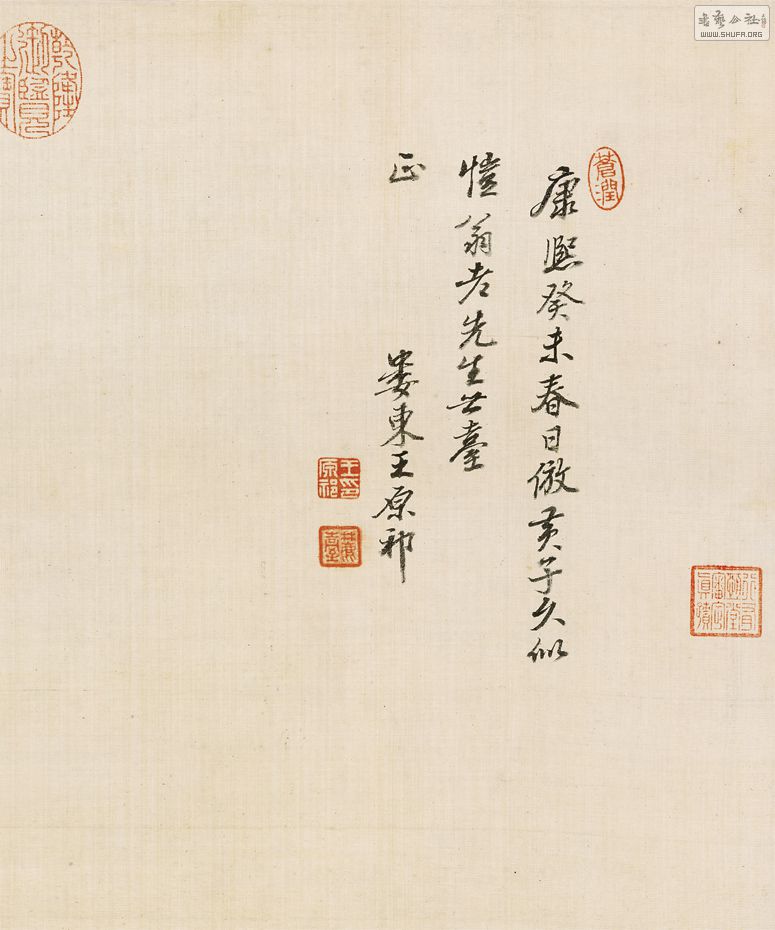 康熙癸未春日倣黃子久似
愷翁老先生世臺
正
婁東王原祁
蒼潤
王原祁印
麓臺
乾隆御覽之寶
書藝公社
WWW.SHUFA.ORG